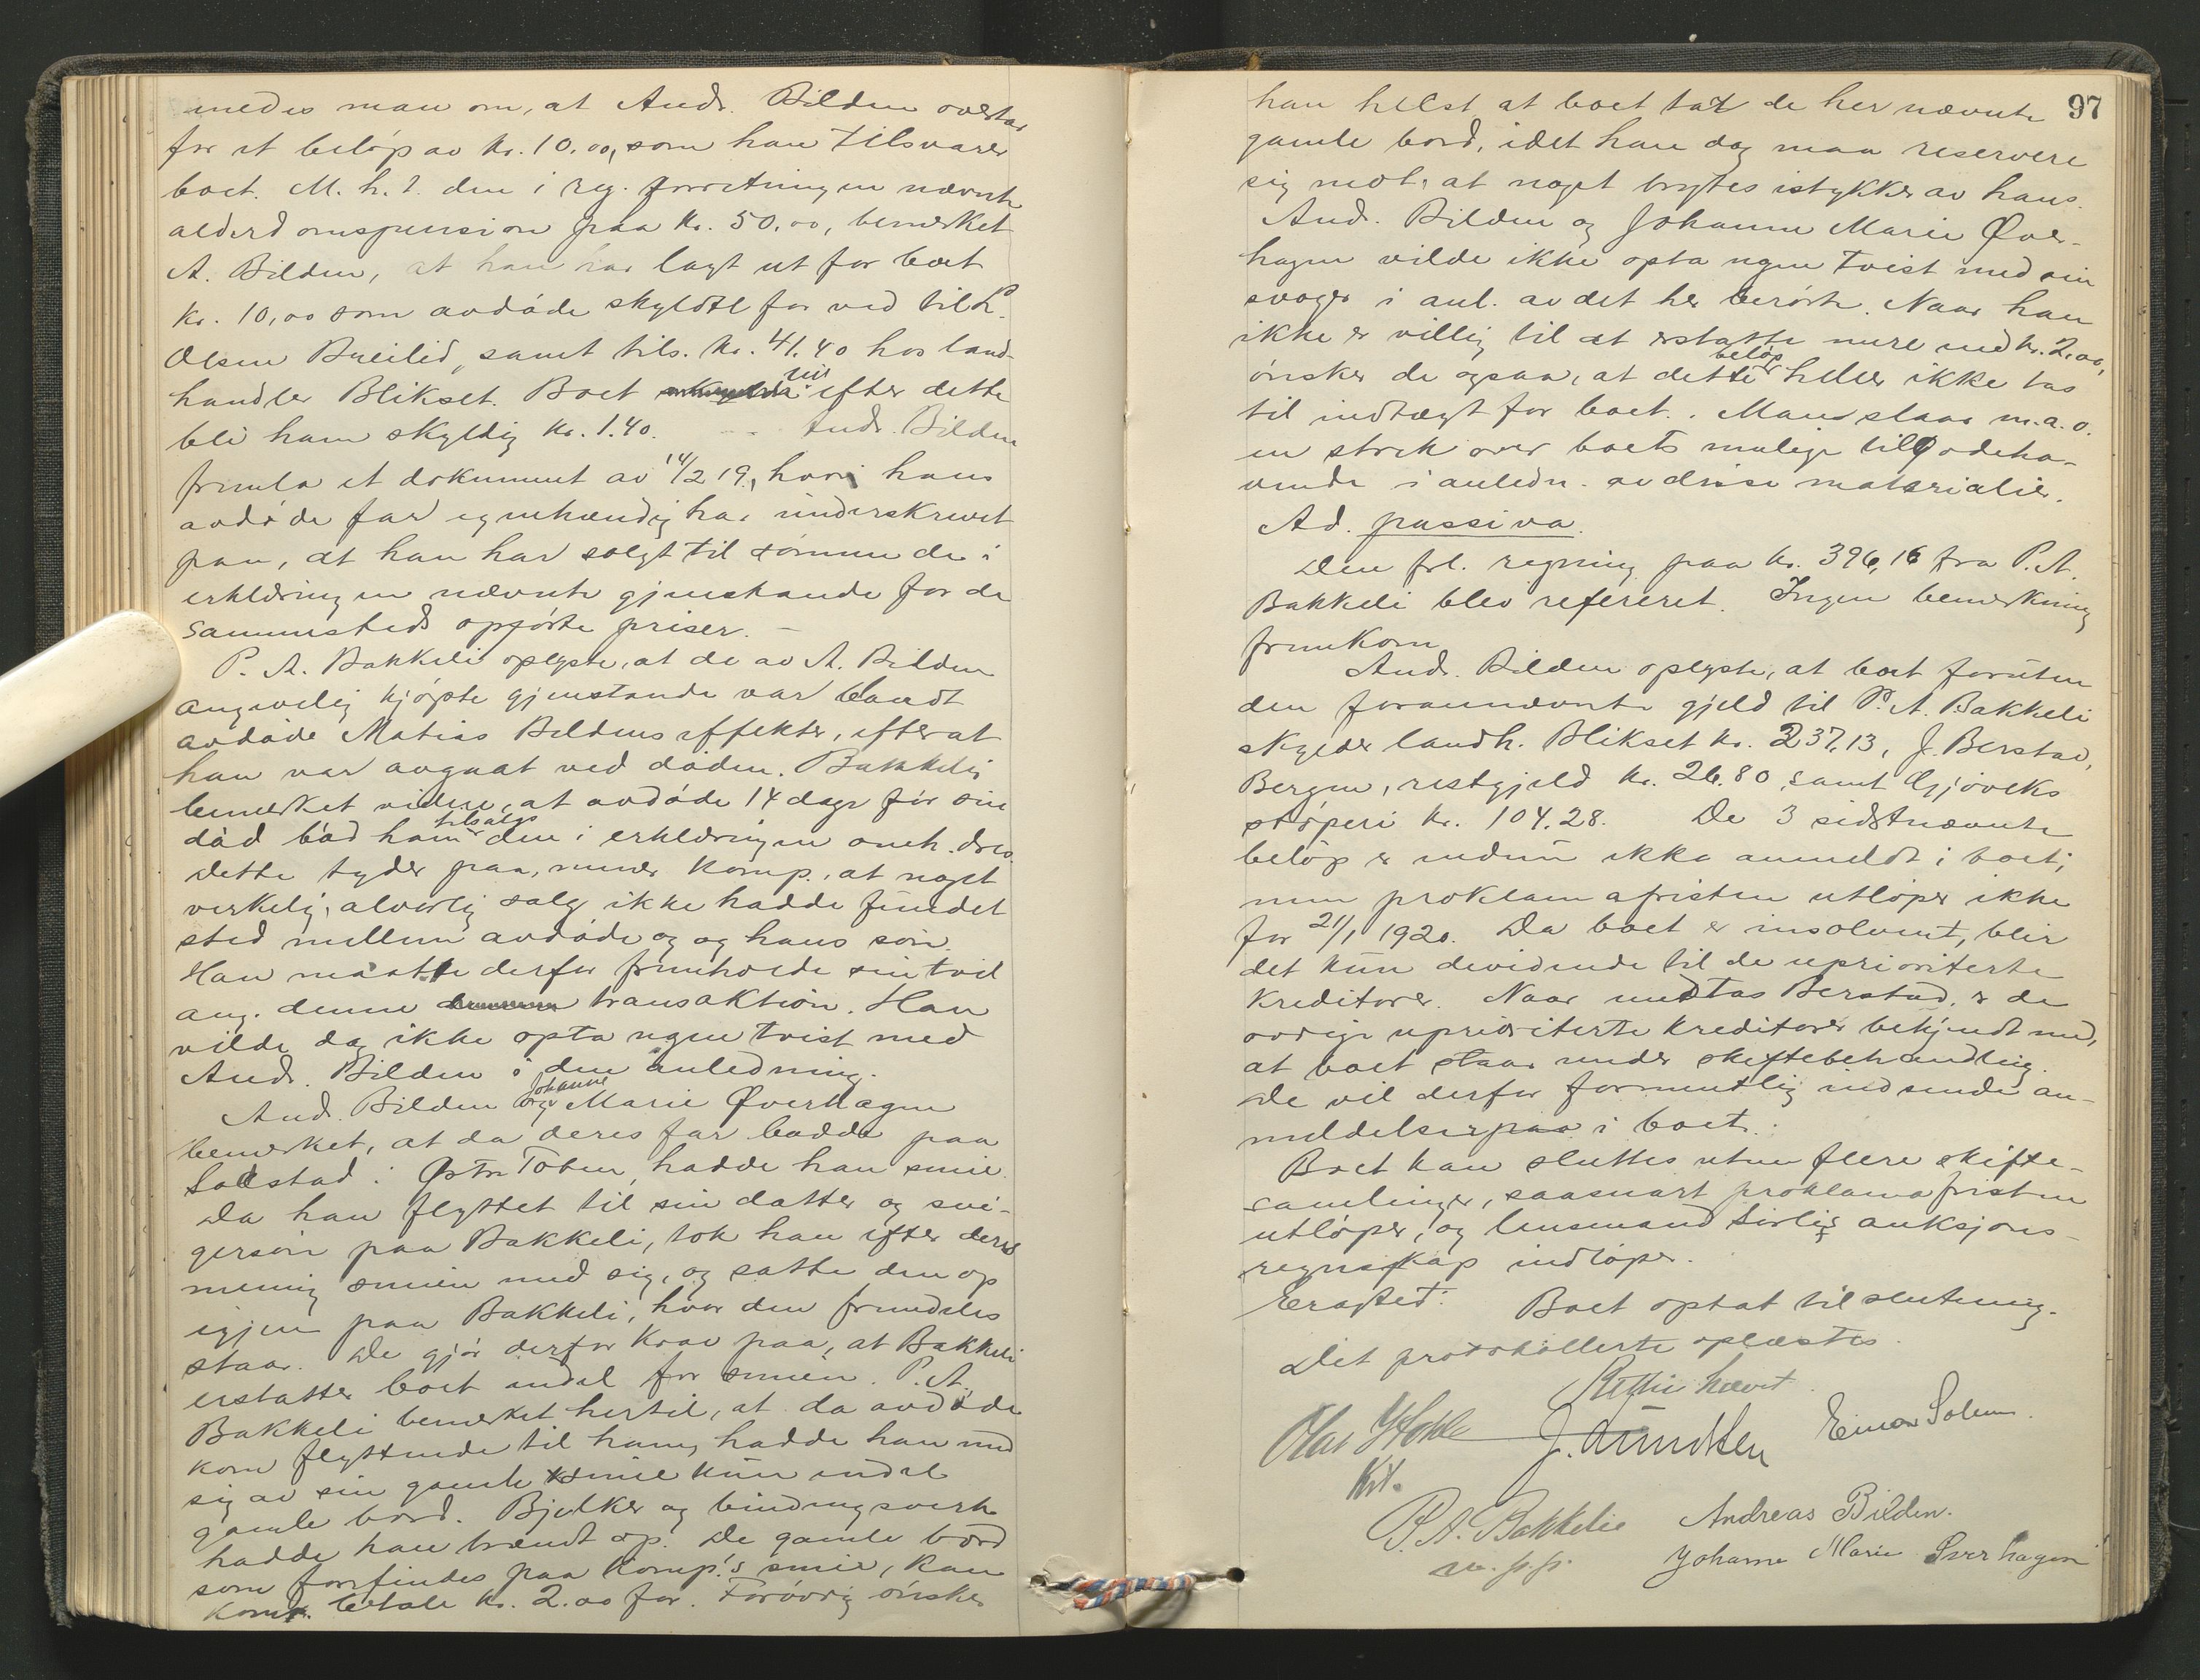 medes man om, at Andr. Bilden overtar
for et beløp av kr. 10.00, som han tilsvarer
boet. M.h.t. den i reg. forretningen nævnte
alderdomspension paa kr. 50.00, bemerket
A. Bilden, at han har lagt ut for boet
kr. 10,00 som avdøde skyldte for ved til P.
Olsen Breilid, samt tils. kr. 41.40 hos land-
handler Blikset. Boet vil efter dette
bli ham skyldig kr. 1.40. Andr. Bilden
fremla et dokument av 14/2 19, hvori hans
avdøde far egenhændig har underskrevet
paa, at han har solgt til sønnen de i
erklæringen nævnte gjenstande for de
sammesteds opførte priser. –
P. A. Bakkeli oplyste, at de av A. Bilden
angivelig kjøpte gjenstande var blandt
avdøde Matias Bildens effekter, efterat
han var avgaat ved døden. Bakkeli
bemerket videre, at avdøde 14 dage før sin
død bød ham tilsalgs den i erklæringen omh. dres.
Dette tyder paa, mener komp., at noget
verkelig, alvorlig salg ikke hadde fundet
sted mellem avdøde og og hans søn.
Han maatte derfor fremholde sin tvil
ang. denne transaktion. Han
vilde dog ikke opta ngen tvist med
Andr. Bilden i den anledning.
And. Bilden og Johanne Marie Øverhagen
bemerket, at da deres far bodde paa
Solstad i Østre Toten, hadde han smie.
Da han flyttet til sin datter og svi-
gersøn paa Bakkeli, tok han efter deres
mening smien med sig, og satte den op
igjen paa Bakkeli, hvor den fremdeles
staar. De gjør derfor krav paa, at Bakkeli
erstatter boet endel for smien. P. A.
Bakkeli bemerket hertil, at da avdøde
kom flyttende til ham, hadde han med
sig av sin gamle smie kun endel
gamle bord. Bjelker og bindingsverk
hadde han brændt op. De gamle bord
som forefindes paa komp.'s smie, kan
komp. betale kr. 2.00 for. Forøvrig ønsker
97
han helst at boet tar de her nævnte
gamle bord, idet han dog maa reservere
sig mot, at noget brytes istykker av hans.
And. Bilden og Johanne Marie Øver-
hagen vilde ikke opta ngen tvist med sin
svoger i anl. av det her berørte. Naar han
ikke er villig til at erstatte mere end kr. 2.00,
ønsker de ogsaa, at dette beløp heller ikke tas
til indtægt for boet. Man slaar m.a.o.
en strek over boets mulige tilgodeha-
vende i anledn. av disse materialier.
Ad. passiva.
Den frl. regning paa kr. 396,16 fra P. A.
Bakkeli blev referert. Ingen bemerkning
fremkom.
Andr. Bilden oplyste, at boet foruten
den forannævnte gjæld til P. A. Bakkeli
skylder landh. Blikset kr. 237,13, J. Berstad,
Bergen, restgjeld kr. 26.80, samt Gjøviks
støperi kr. 104.28. De 3 sidstnævnte
beløp er endnu ikke anmeldt i boet;
men proklamafristen utløper ikke
før 21/1 1920. Da boet er insolvent, blir
det kun dividende til de uprioriterte
kreditorer. Naar undtas Berstad, er de
øvrige uprioriterte kreditorer bekjendt med,
at boet staar under skiftebehandling.
De vil derfor formentlig indsende an-
meldelser paa i boet.
Boet kan sluttes uten flere skifte-
samlinger, saasnart proklamafristen
utløper, og lensmand auksjons-
regnskap indløper.
Eragtet: Boet optat til slutning.
Det protokollerte oplæstes.
Retten hævet.
J. Amundsen Einar Solem.
P. A. Bakkelie Andreas Bilden.
m. p. p. Johanne Marie Øverhagen